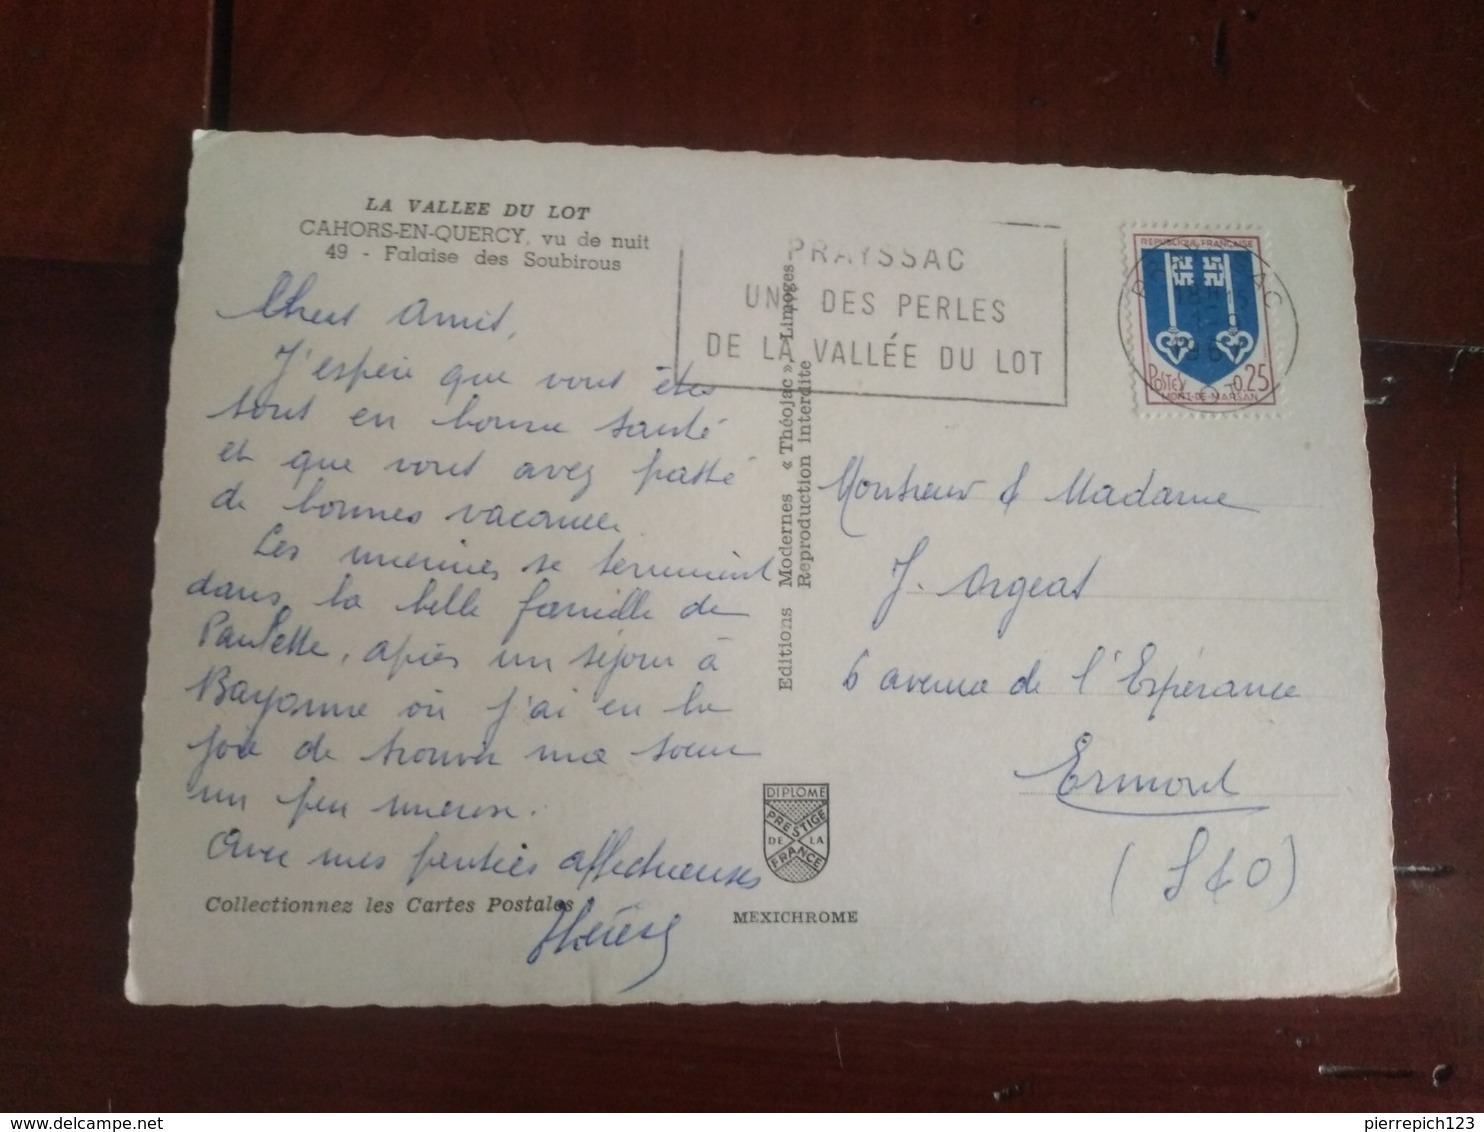 LA VALLEE DU LOT
CAHORS-EN-QUERCY, vu de nuit
49 - Falaise des Soubirous
Chers Amis,
J'espère que vous êtes
tous en bonne santé
et que vous avez passé
de bonnes vacances
Les miennes se terminent
dans la belle famille de
Paulette, après un séjour à
Bayonne où j'ai eu la
joie de trouver ma sœur
un peu mieux.
Avec mes pensées affectueuses
Collectionnez les Cartes Postales
PRAYSSAC
UNE DES PERLES
DE LA VALLÉE DU LOT
Editions Modernes « Théojac », Limoges
Reproduction interdite
DIPLOME
PRESTIGE
DE LA
FRANCE
MEXICHROME
REPUBLIQUE FRANÇAISE
POSTES 0,25
MONT-DE-MARSAN
Monsieur & Madame
J. Orgeas
6 avenue de l'Espérance
Ermont
(S & O)
pierrepich123